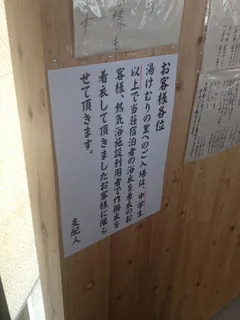 お客様各位
湯けむりの里へのご入場は、中学生
以上で当荘宿泊者の浴衣を着衣のお
客様、熱気浴施設利用者で作務衣を
着衣して頂きましたお客様に限ら
せて頂きます。
支配人